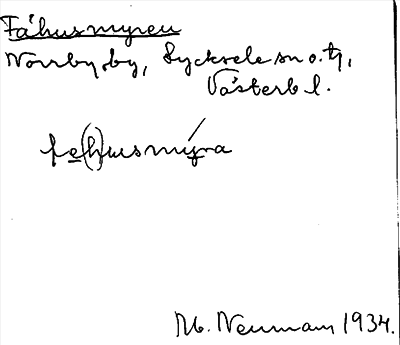 Fähusmyren
Norrby by, Lycksele sn o. tg,
Västerb l.
fe(h)usmyra
M. Neuman 1934.